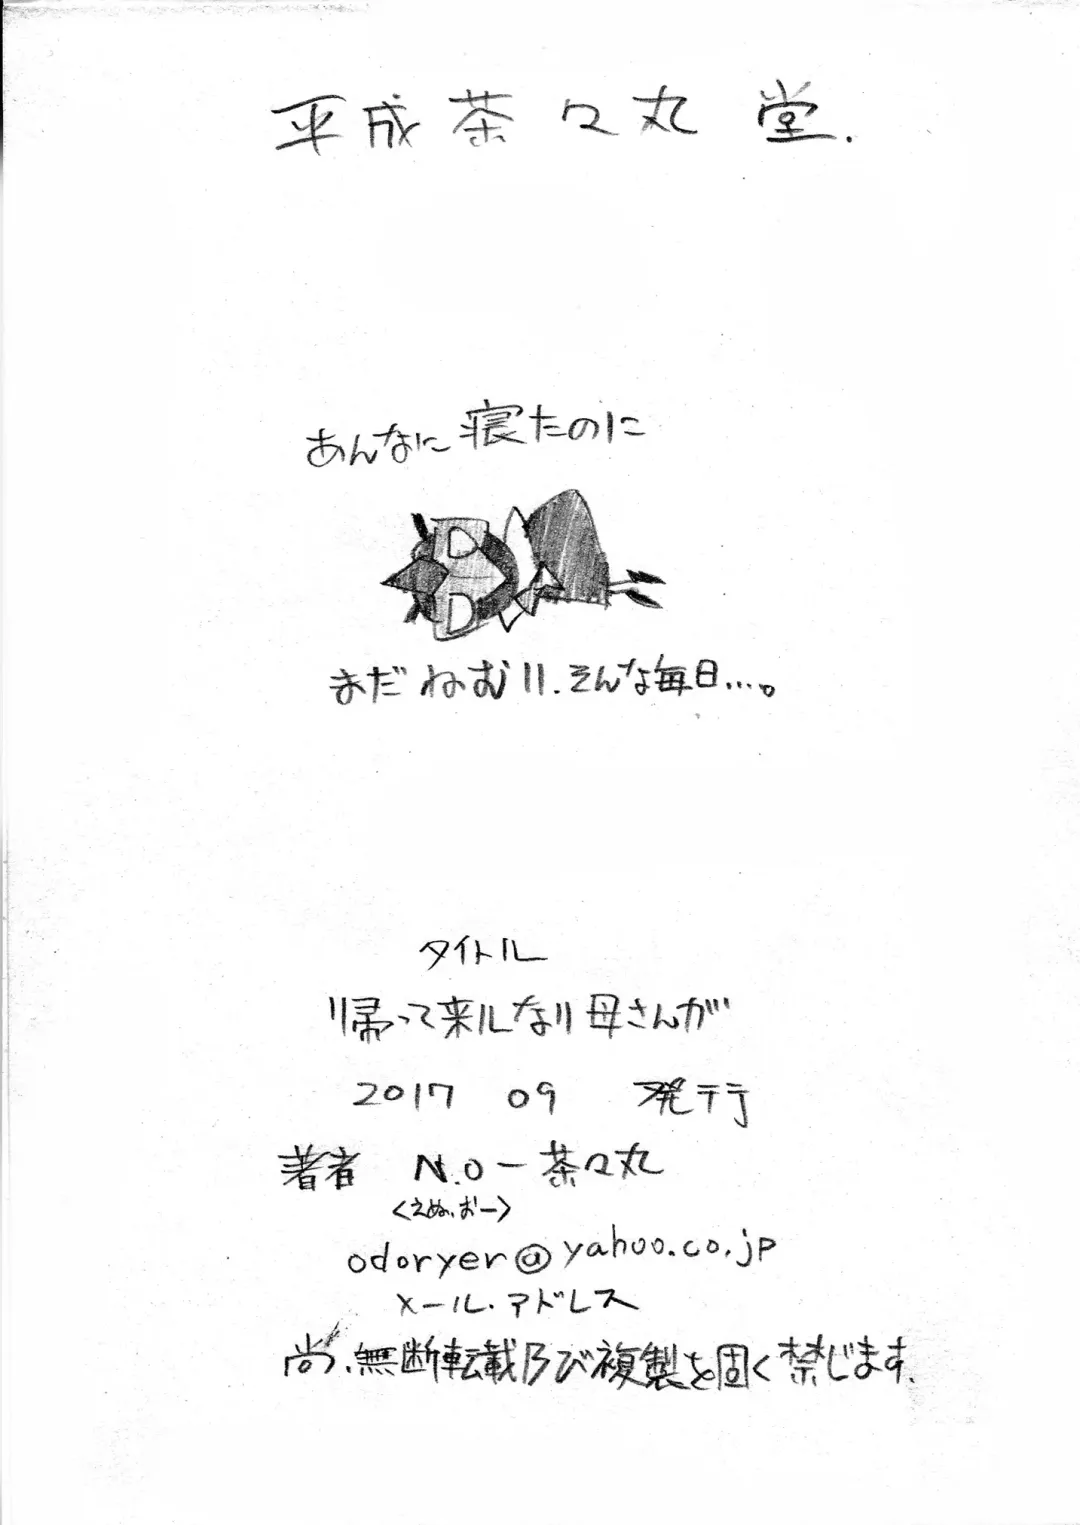 平成茶々丸堂.
あんなに寝たのに
まだねむい.そんな毎日…。
タイトル
帰って来ルない母さんが
2017 09 発行
著者 N.O-茶々丸
<えぬ.おー>
odoryer@yahoo.co.jp
メール.アドレス
尚.無断転載及び複製を固く禁じます.